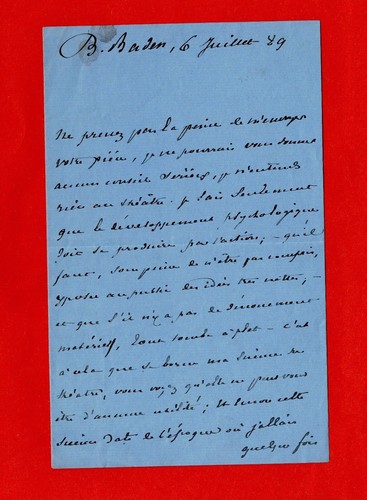 B. Baden, 6 Juillet 89
Ne prenez pas la peine de m'envoyer
votre pièce, je ne pourrais vous donner
aucun conseil sérieux, je n'entends
rien au théâtre. je sais seulement
que le développement psychologique
doit se produire par l'action, – qu'il
faut, sous peine de n'être pas compris,
exposer au public des idées très nettes, –
et que s'il n'y a pas de dénouement
matériel, tout tombe à plat – c'est
à cela que se borne ma science du
théâtre, vous voyez qu'elle ne peut vous
être d'aucune utilité; et encore cette
science date de l'époque où j'allais
quelque fois